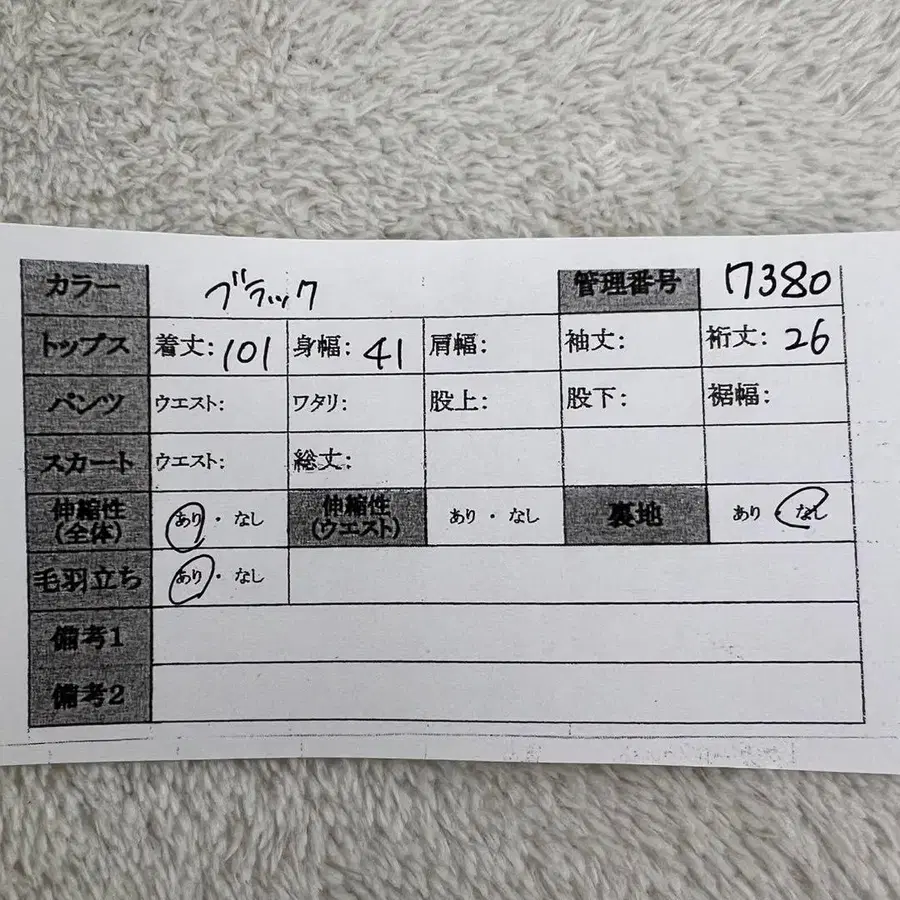 カラー ブラック 管理番号 17380
トップス 着丈: 101 身幅: 41 肩幅: 袖丈: 裄丈: 26
パンツ ウエスト: ワタリ: 股上: 股下: 裾幅:
スカート ウエスト: 総丈:
伸縮性(全体) あり ・ なし 伸縮性(ウエスト) あり ・ なし 裏地 あり ・ なし
毛羽立ち あり ・ なし
備考1
備考2